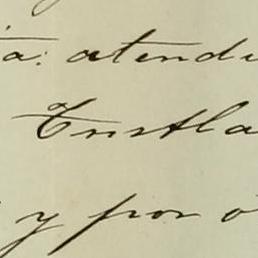 a: atend
Tustla
y por o